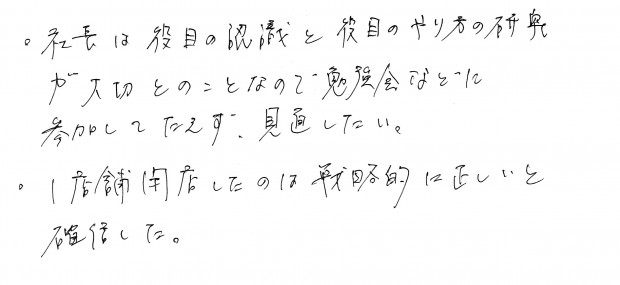 。社長は役目の認識と役目のやり方の研究
が大切とのことなので勉強会などに
参加してたえず、見直したい。
。1店舗閉店したのは戦略的に正しいと
確信した。